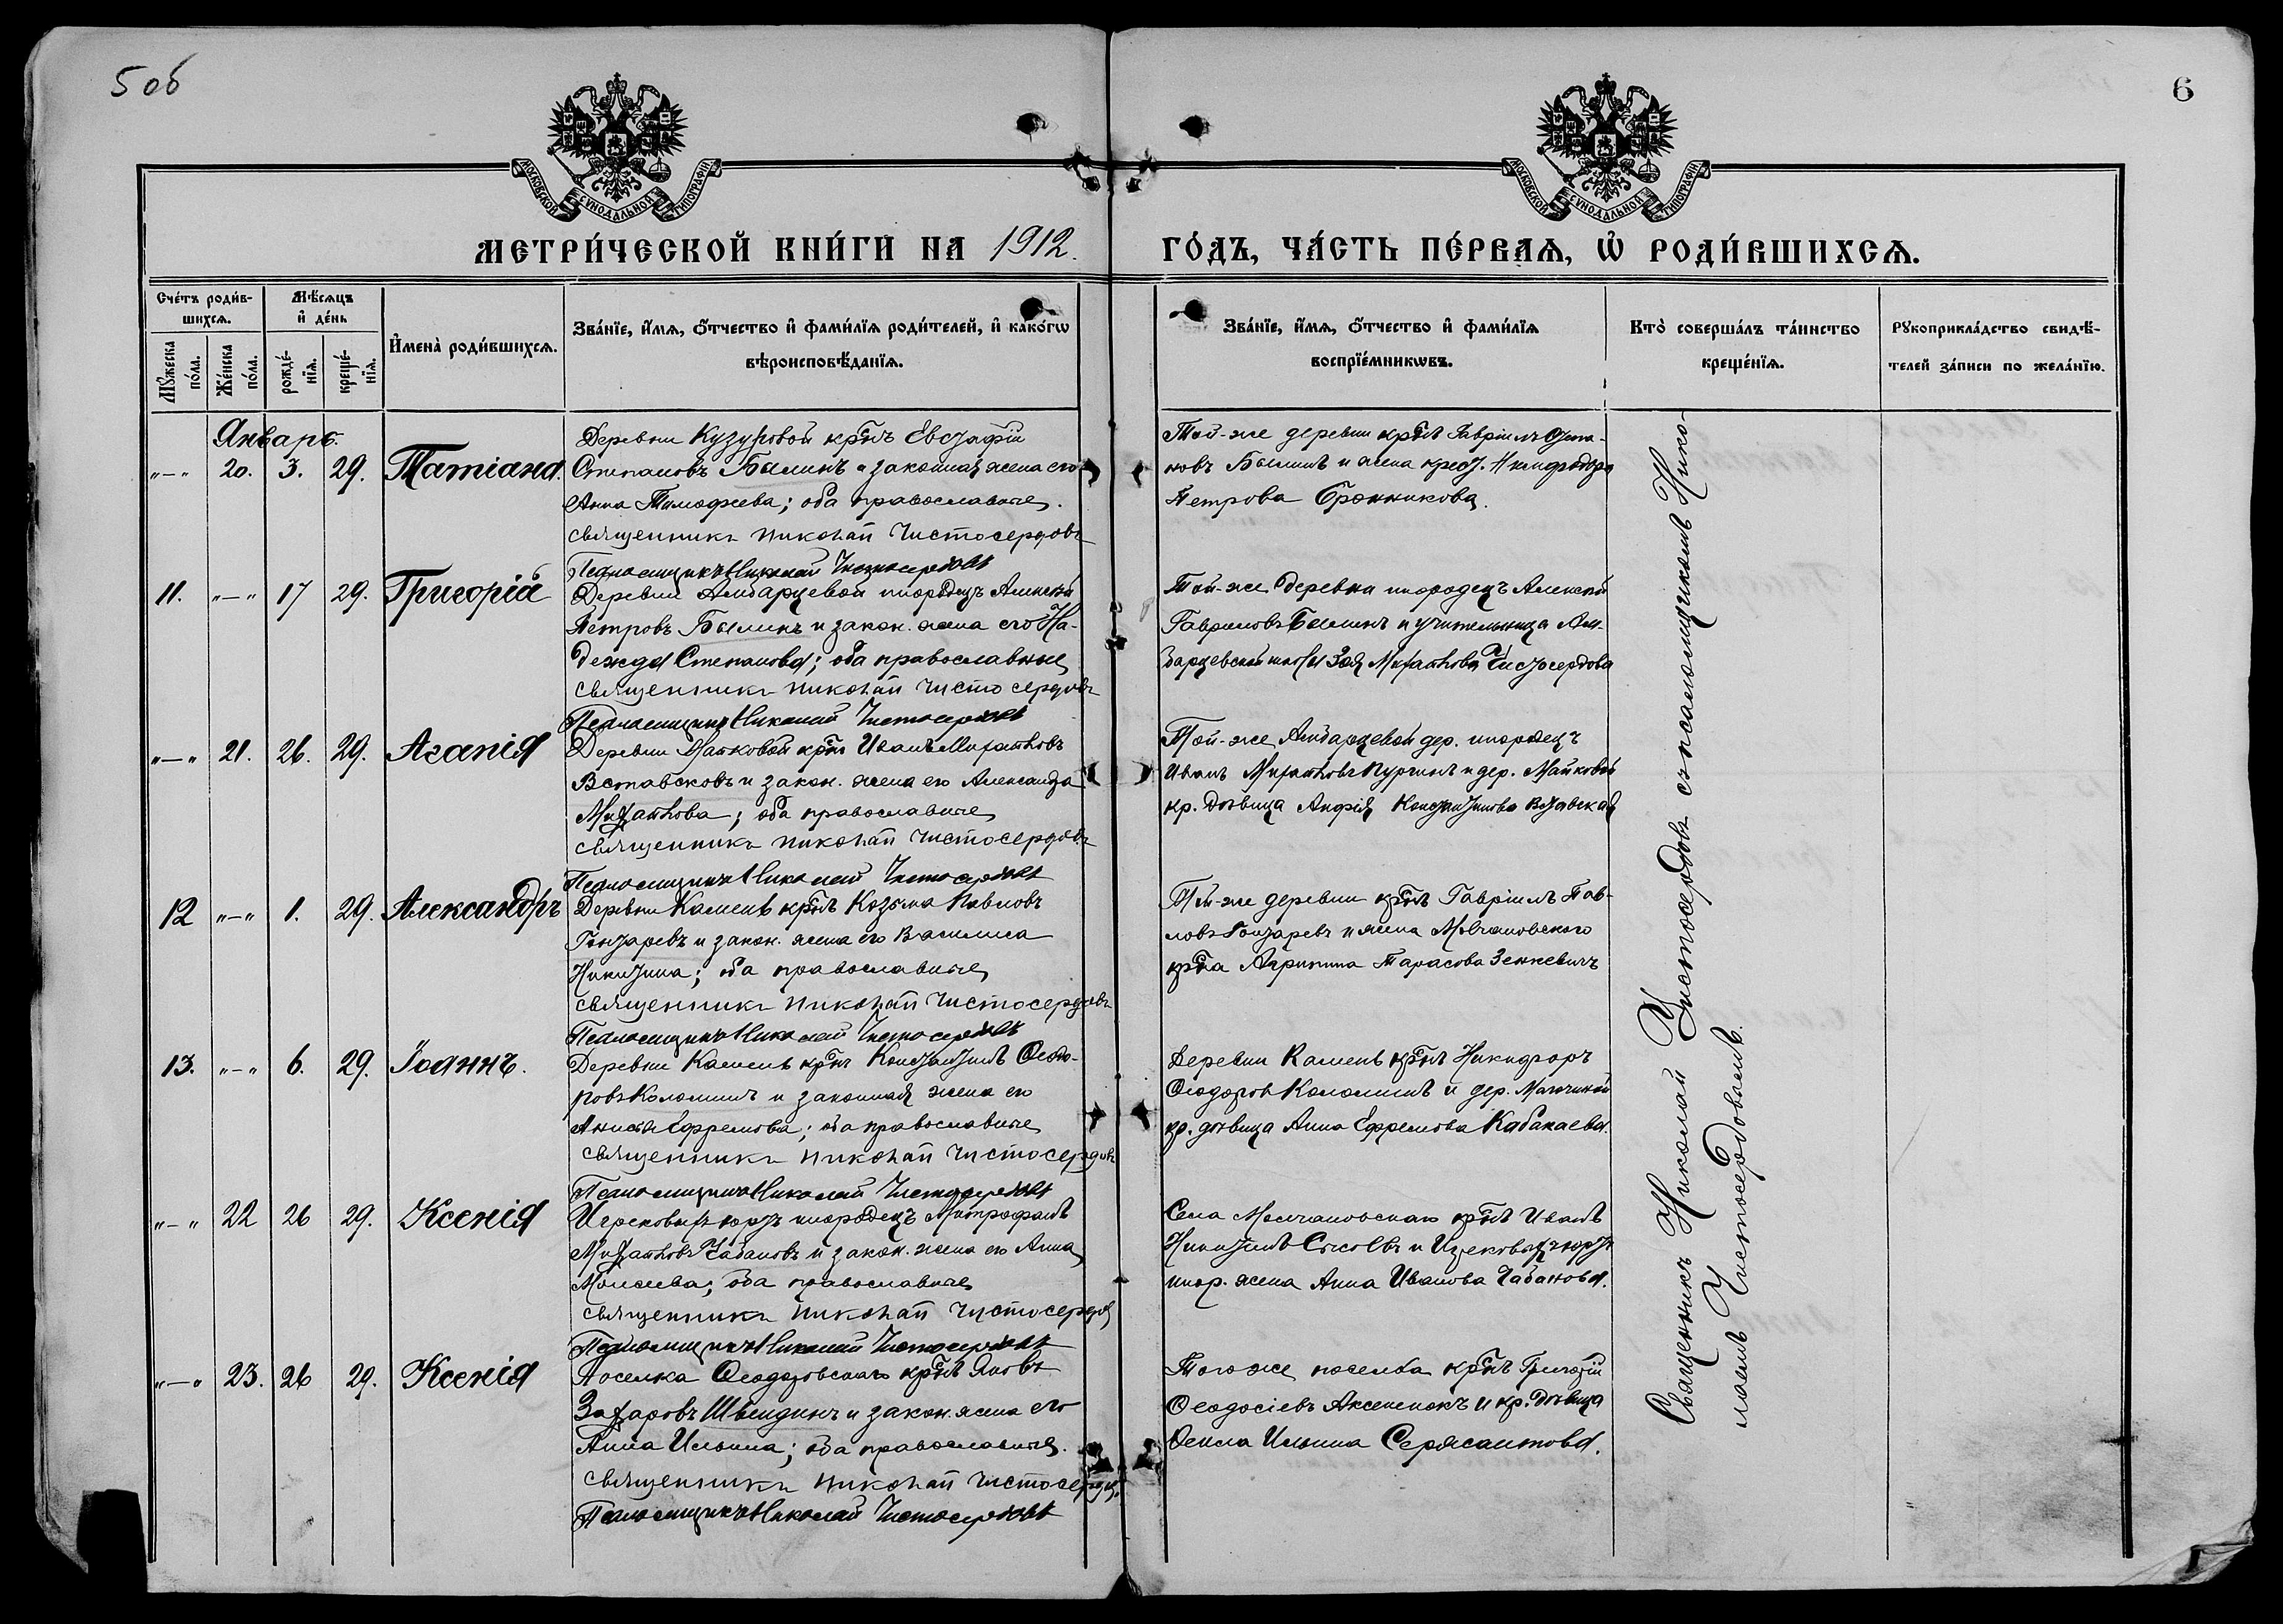 5 об
6
МОСКОВСКОЙ СУНОДАЛЬНОЙ ТИПОГРАФІИ
МОСКОВСКОЙ СУНОДАЛЬНОЙ ТИПОГРАФІИ
МЕТРИ́ЧЕСКОЙ КНИ́ГИ НА 1912. ГО́ДЪ, ЧА́СТЬ ПЕ́РВАѦ, Ѡ҆ РОДИ́ВШИХСѦ.
Сче́тъ роди́в-
шихсѧ.
Мѣ́сѧцъ
и҆ де́нь
Мꙋ́жеска по́ла.
Же́нска по́ла.
рожде́-
нїѧ.
креще́-
нїѧ.
И҆мена̀ роди́вшихсѧ.
Зва́нїе, и҆́мѧ, ѻ҆́тчество и҆ фами́лїѧ роди́телей, и҆ како́гѡ
вѣроисповѣ́данїѧ.
Зва́нїе, и҆́мѧ, ѻ҆́тчество и҆ фами́лїѧ
воспрїе́мникѡвъ.
Кто̀ соверша́лъ та́инство
креще́нїѧ.
Рꙋкоприкла́дство свидѣ́-
телей за́писи по жела́нїю.
Январь.
„—„ 20. 3. 29. Татіана.
Деревни Кузуровой кр-нъ Евстафій
Степановъ Былинъ и законная жена его
Анна Тимофеева; оба православные.
священникъ Николай Чистосердовъ
Псаломщикъ Николай Чистосердовъ
Той-же деревни кр-нъ Гавріилъ Степа-
новъ Былинъ и жена крест. Никифора
Петрова Бронникова.
11. „—„ 17 29. Григорій
Деревни Амбарцевой инородецъ Алексей
Петровъ Былинъ и закон. жена его На-
дежда Степанова; оба православные
священникъ Николай Чистосердовъ
Псаломщикъ Николай Чистосердовъ
Той-же деревни инородецъ Алексей
Гавриловъ Былинъ и учительница Ам-
барцевской школы Зоя Михайлова Чистосердова
„—„ 21. 26. 29. Агапія
Деревни Майковой кр-нъ Иванъ Михайловъ
Вставсковъ и закон. жена его Александра
Михайлова; оба православные
священникъ Николай Чистосердовъ
Псаломщикъ Николай Чистосердовъ
Той-же Амбарцевой дер. инородецъ
Иванъ Михайловъ Кургинъ и дер. Майковой
кр. дѣвица Анфія Константинова Вставская
12 „—„ 1. 29. Александръ
Деревни Камень кр-нъ Козьма Павловъ
Гонтаревъ и закон. жена его Василиса
Никитина; оба православные
священникъ Николай Чистосердовъ
Псаломщикъ Николай Чистосердовъ
Той-же деревни кр-нъ Гавріилъ Пав-
ловъ Гонтаревъ и жена Молчановского
кр-на Агрипина Тарасова Зенкевичъ
13. „—„ 6. 29. Іоаннъ.
Деревни Камень кр-нъ Константинъ Ѳеодо-
ровъ Коломинъ и законная жена его
Анисія Ефремова; оба православные
священникъ Николай Чистосердовъ
Псаломщикъ Николай Чистосердовъ
Деревни Камень кр-нъ Никифоръ
Ѳеодоровъ Коломинъ и дер.
кр. дѣвица Анна Ефремова Кабакаева.
„—„ 22 26 29. Ксенія
юртъ инородецъ Митрофанъ
Михайловъ Чабановъ и закон. жена его Анна
Моисеева; оба православные
священникъ Николай Чистосердовъ
Псаломщикъ Николай Чистосердовъ
Села Молчановскаго кр-нъ Иванъ
Никитинъ Сысоевъ и юртъ
инор. жена Анна Иванова Чабанова.
„—„ 23. 26 29. Ксенія
Поселка Ѳеодоровскаго кр-нъ Яковъ
Захаровъ Швендинъ и закон. жена его
Анна Ильина; оба православные.
священникъ Николай Чистосердовъ
Псаломщикъ Николай Чистосердовъ
Того же поселка кр-нъ Григорій
Ѳеодосіевъ Аксененокъ и кр. дѣвица
Ѳекла Ильина Сержантова.
Священникъ Николай Чистосердовъ съ псаломщикомъ Нико-
лаемъ Чистосердовымъ.